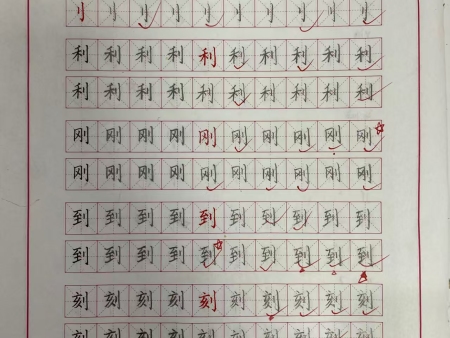 刂 刂 刂 刂 刂 刂 刂 刂 刂 刂
利 利 利 利 利 利 利 利 利 利
利 利 利 利 利 利 利 利 利 利
刚 刚 刚 刚 刚 刚 刚 刚 刚 刚
刚 刚 刚 刚 刚 刚 刚 刚 刚 刚
到 到 到 到 到 到 到 到 到 到
到 到 到 到 到 到 到 到 到 到
刻 刻 刻 刻 刻 刻 刻 刻 刻 刻
刻 刻 刻 刻 刻 刻 刻 刻 刻 刻